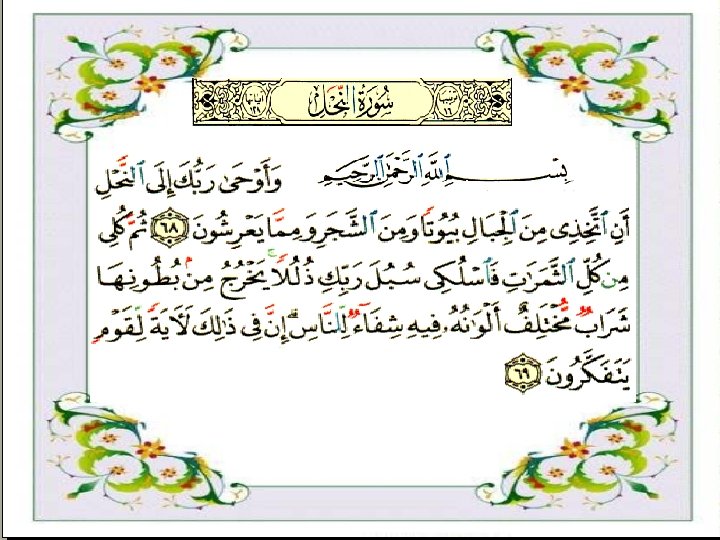 ترتيبها ١٦ سُورَةُ النَّحْلِ آياتها ١٢٨
بِسْمِ اللَّهِ الرَّحْمَٰنِ الرَّحِيمِ وَأَوْحَىٰ رَبُّكَ إِلَى النَّحْلِ
أَنِ ٱتَّخِذِى مِنَ ٱلْجِبَالِ بُيُوتًا وَمِنَ ٱلشَّجَرِ وَمِمَّا يَعْرِشُونَ ٦٨ ثُمَّ كُلِى
مِن كُلِّ ٱلثَّمَرَٰتِ فَٱسْلُكِى سُبُلَ رَبِّكِ ذُلُلًا ۚ يَخْرُجُ مِنۢ بُطُونِهَا
شَرَابٌ مُّخْتَلِفٌ أَلْوَٰنُهُۥ فِيهِ شِفَآءٌ لِّلنَّاسِ ۗ إِنَّ فِى ذَٰلِكَ لَءَايَةً لِّقَوْمٍ
يَتَفَكَّرُونَ ٦٩